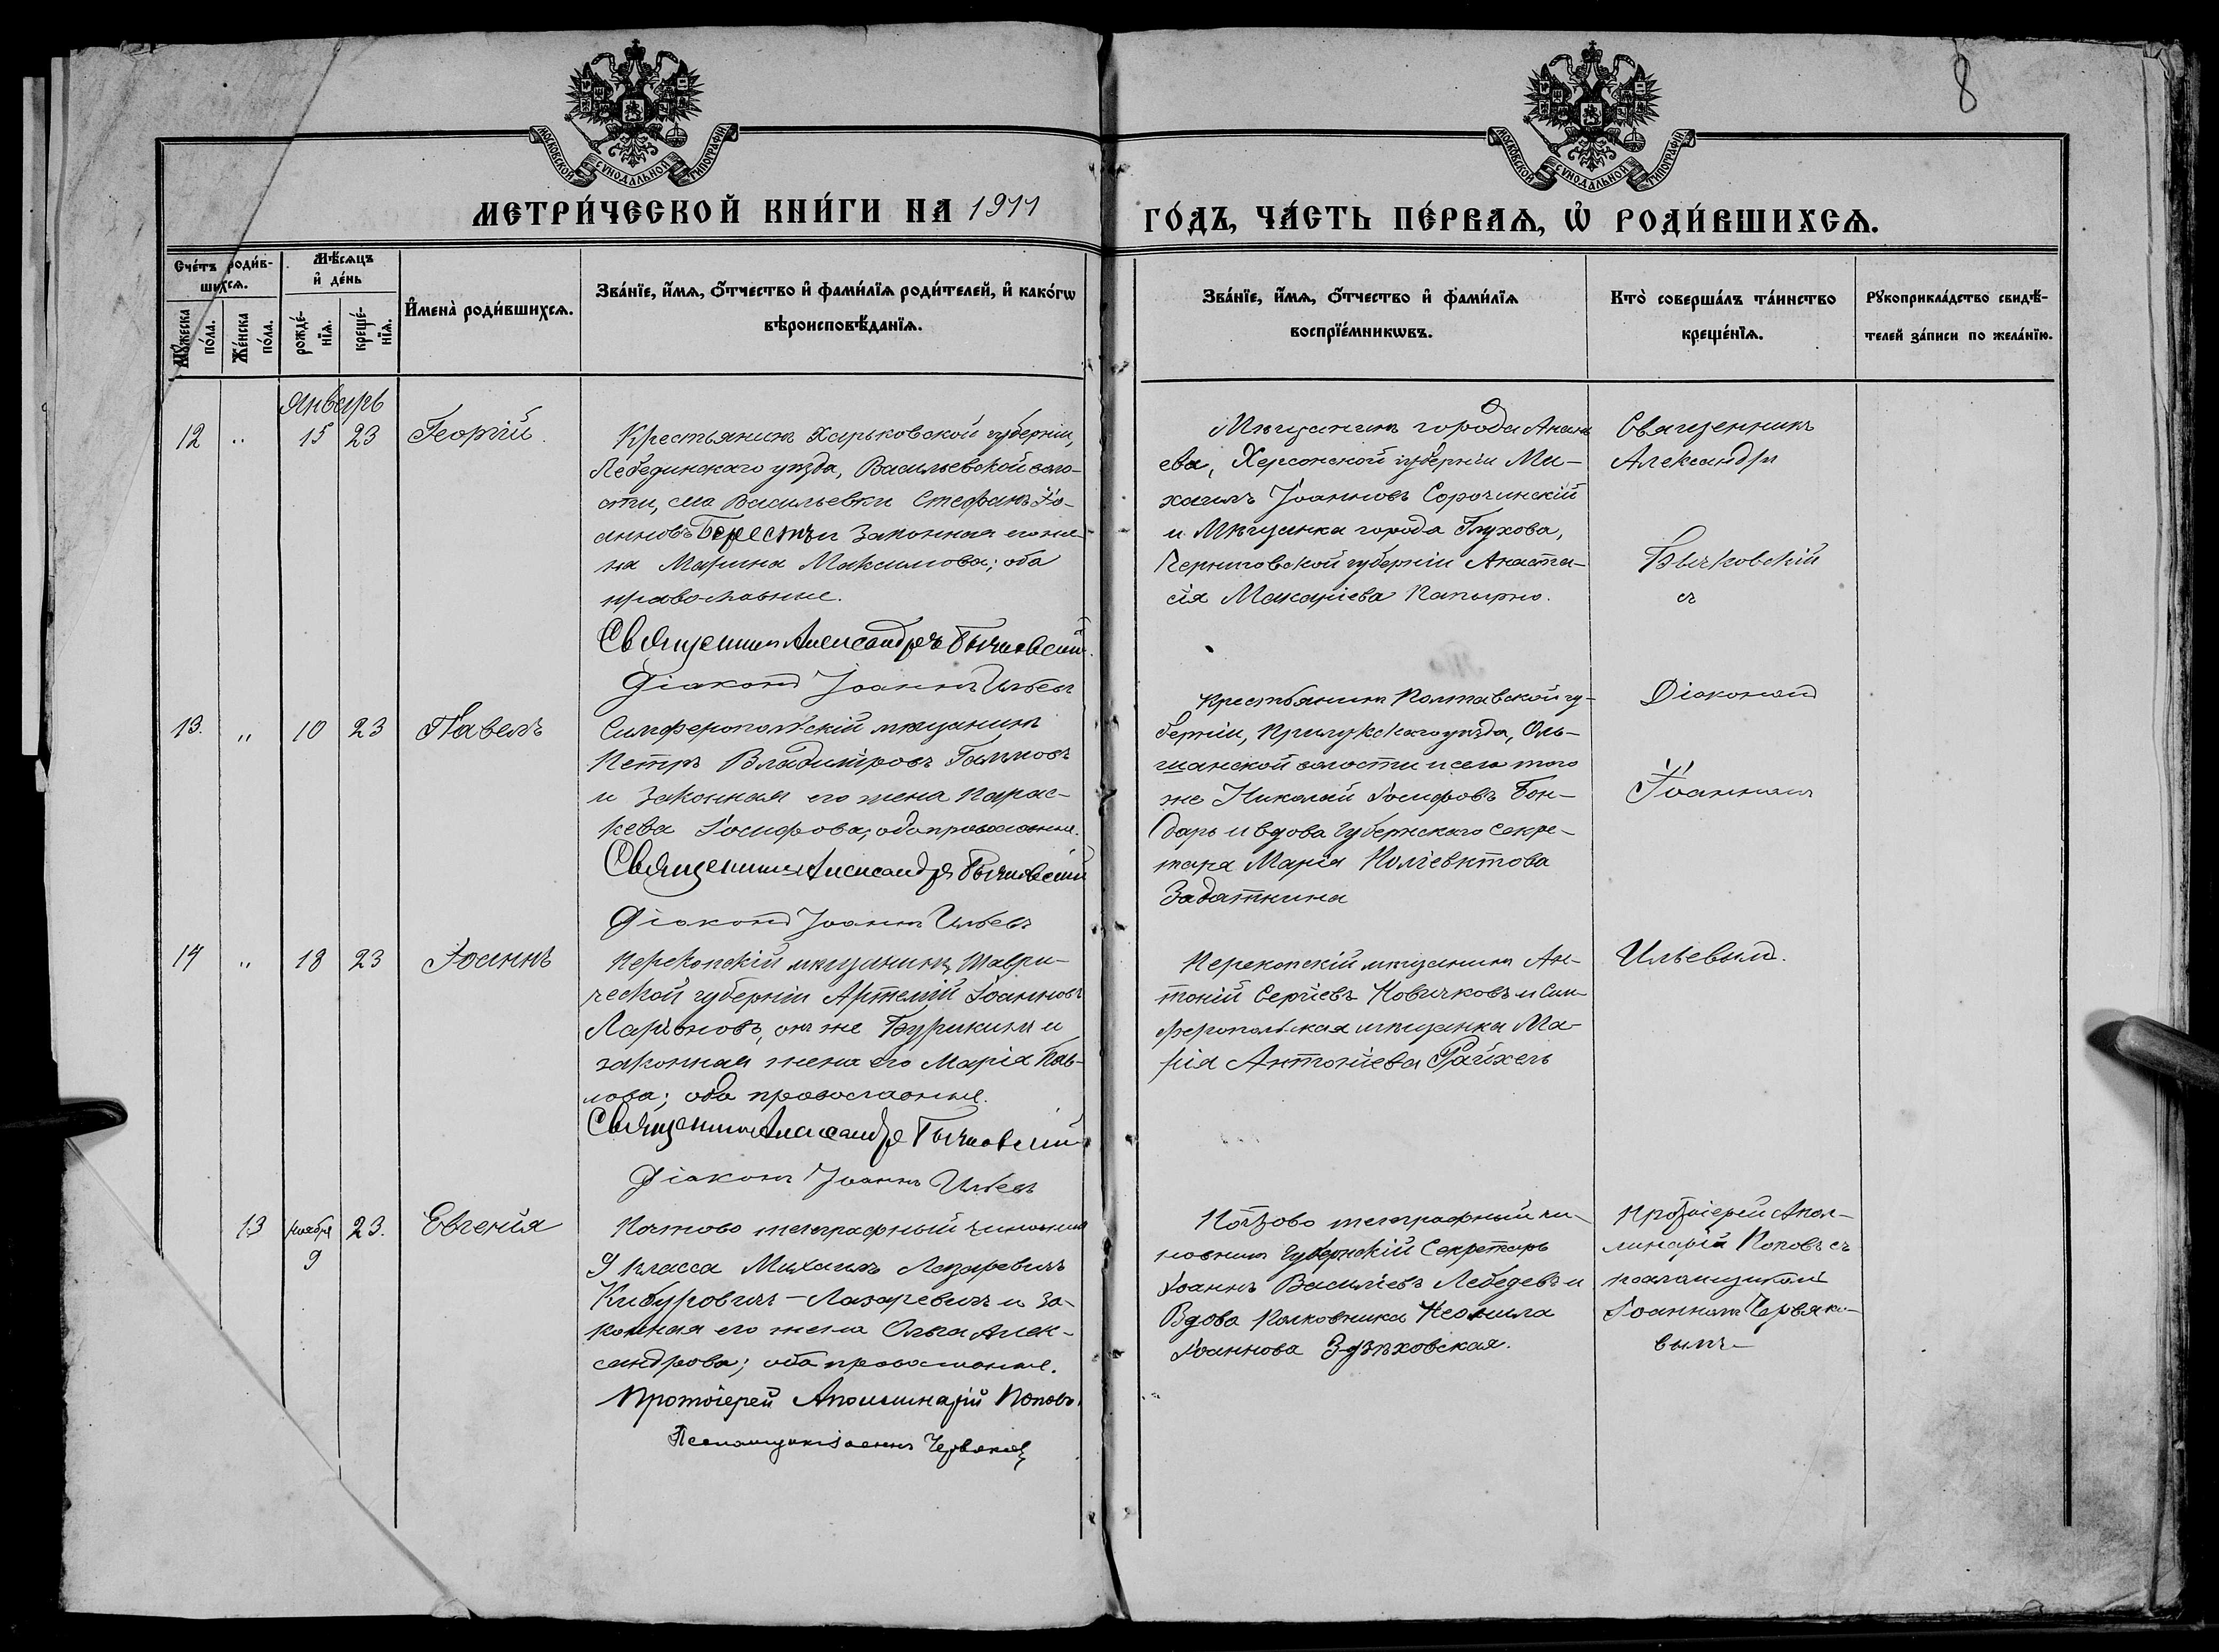 8
МОСКОВСКОЙ СѴНОДАЛЬНОЙ ТИПОГРАФІИ
МОСКОВСКОЙ СѴНОДАЛЬНОЙ ТИПОГРАФІИ
МЕТРИ́ЧЕСКОЙ КНИ́ГИ НА 1911
ГО́ДЪ, ЧА́СТЬ ПЕ́РВАѦ, Ѡ҆ РОДИ́ВШИХСѦ.
Сче́тъ роди́в-
шихсѧ.
Мꙋ́жеска
по́ла.
Же́нска
по́ла.
Мѣ́сѧцъ
и҆ де́нь
рожде́-
нїѧ.
креще́-
нїѧ.
И҆мена̀ роди́вшихсѧ.
Зва́нїе, и҆́мѧ, ѻ҆́тчество и҆ фами́лїѧ роди́телей, и҆ како́гѡ
вѣроисповѣ́данїѧ.
Зва́нїе, и҆́мѧ, ѻ҆́тчество и҆ фами́лїѧ
воспрїе́мникѡвъ.
Кто̀ соверша́лъ та́инство
креще́нїѧ.
Рꙋкоприкла́дство свидѣ́-
телей за́писи по жела́нїю.
Январь
12 " 15 23 Георгій.
Крестьянинъ Харьковской губерніи,
Лебединскаго уѣзда, Васильевской воло-
сти, села Васильевки Стефанъ Іо-
анновъ Берестъ и законная его же-
на Марина Максимова; оба
православные.
Священникъ Александръ Бычковскій.
Діаконъ Іоаннъ Ильевъ
Мѣщанинъ города Анань
ева, Херсонской губерніи Ми-
хаилъ Іоанновъ Сорочинскій
и Мѣщанка города Глухова,
Черниговской губерніи Анаста-
сія Макаріева Папырно.
Священникъ
Александръ
Бычковскій
съ
Діакономъ
Іоанномъ
Ильевымъ.
13. " 10 23 Павелъ
Симферопольскій мѣщанинъ
Петръ Владиміровъ Гальковъ
и законная его жена Парас-
кева Іосифова; оба православные.
Священникъ Александръ Бычковскій
Діаконъ Іоаннъ Ильевъ
Крестьянинъ Полтавской гу-
берніи, Прилукскаго уѣзда, Оль-
шанской волости и села того
же Николай Іосифовъ Бон-
дарь и вдова Губернскаго Секре-
таря Марія Поліевктова
Задатнина
14 " 18 23 Іоаннъ
Перекопскій мѣщанинъ, Таври-
ческой губерніи Артемій Іоанновъ
Ларіоновъ, онъ же Бурикинъ и
законная жена его Марія Пав-
лова; оба православные.
Священникъ Александръ Бычковскій
Діаконъ Іоаннъ Ильевъ
Перекопскій мѣщанинъ Ан-
тоній Сергіевъ Новичковъ и Сим-
феропольская мѣщанка Ма-
рія Антоніева Райхель
13 ноября 23. Евгенія
9
Почтово телеграфный чиновникъ
9 класса Михаилъ Лазаревичъ
Кибуровичъ-Лазаревичъ и за-
конная его жена Ольга Алек-
сандрова; оба православные.
Протоіерей Аполлинарій Поповъ
Псаломщикъ Іоаннъ Червяковъ
Почтово телеграфный чи-
новникъ Губернскій Секретарь
Іоаннъ Василіевъ Лебедевъ и
Вдова Полковника Неонила
Іоаннова Здѣховская.
Протоіерей Апол-
линарій Поповъ съ
псаломщикомъ
Іоанномъ Червяко-
вымъ